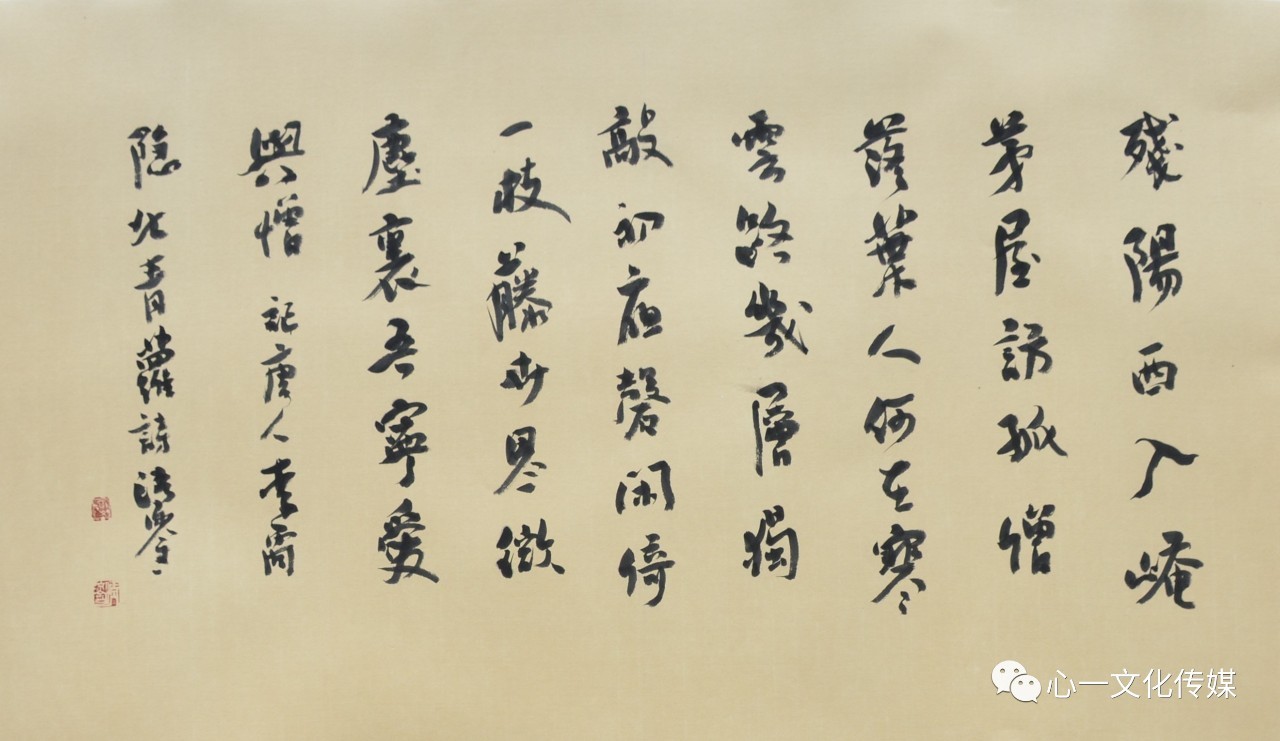 殘陽西入崦
茅屋訪孤僧
落葉人何在寒
雲路幾層獨
敲初夜磬閑倚
一枝藤世界微
塵裏吾寧愛
與憎 記唐人李商
隐北青蘿詩
心一文化传媒